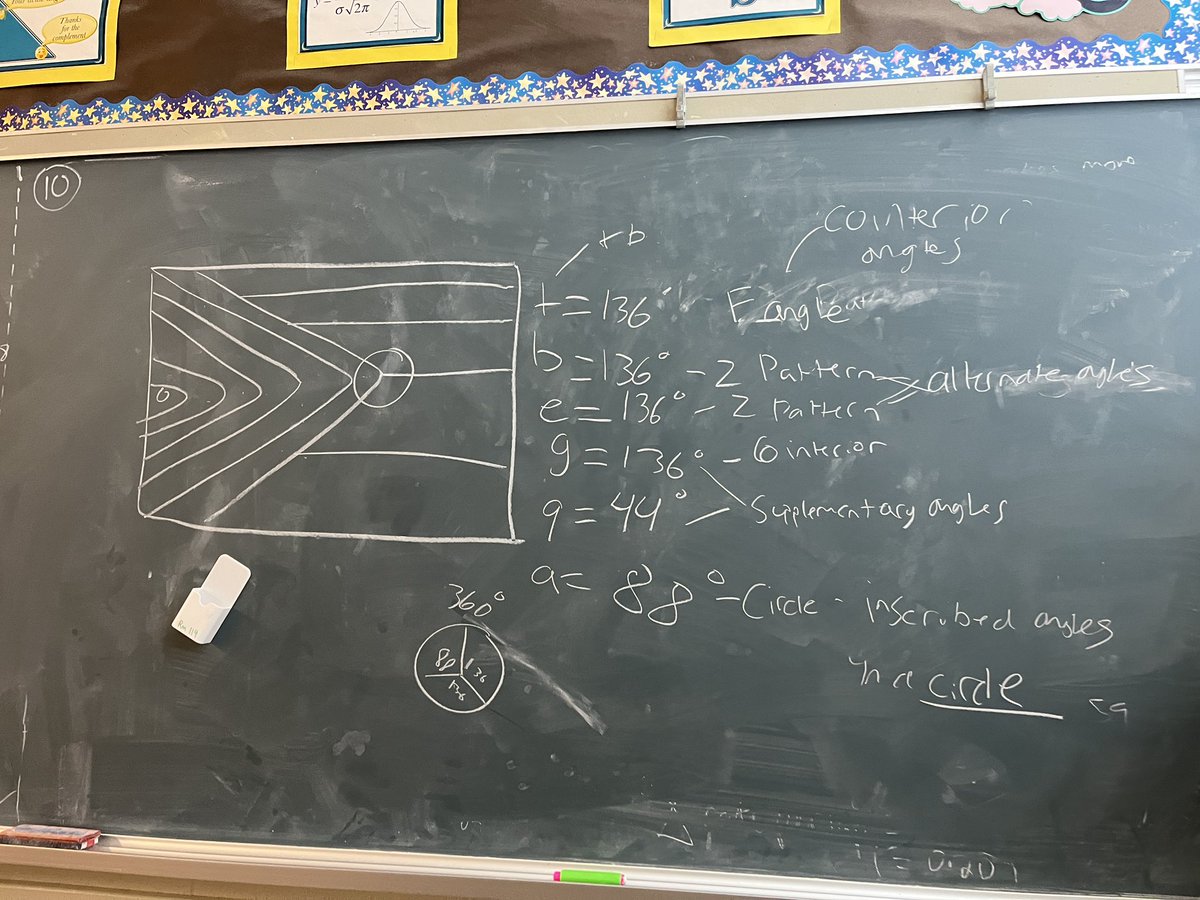 Thanks
for the
complement
σ√2π
10
+ b
cointerior
angles
t = 136° - F angle
b = 136° - Z Pattern
alternate angles
e = 136° - Z Pattern
g = 136° - Cointerior
q = 44°
Supplementary angles
a = 88° - Circle - inscrubed angles
in a circle
360°
136
136
Rm 114